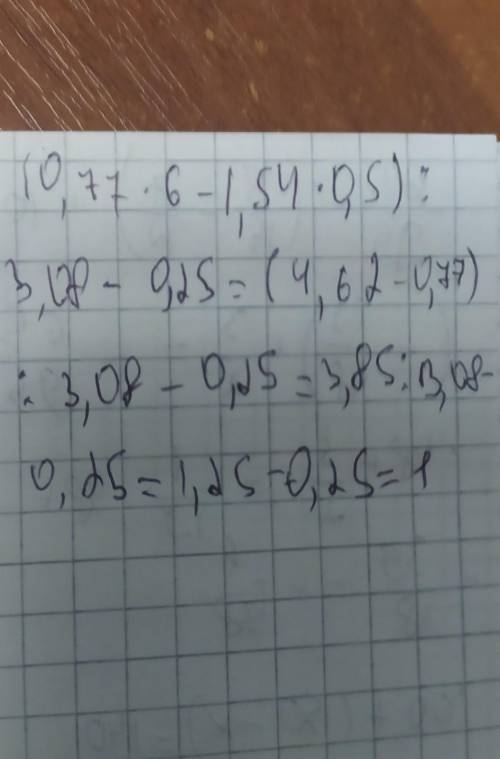 (0,77 · 6 - 1,54 · 0,5) :
3,08 - 0,25 = (4,62 - 0,77)
: 3,08 - 0,25 = 3,85 : 3,08 -
0,25 = 1,25 - 0,25 = 1